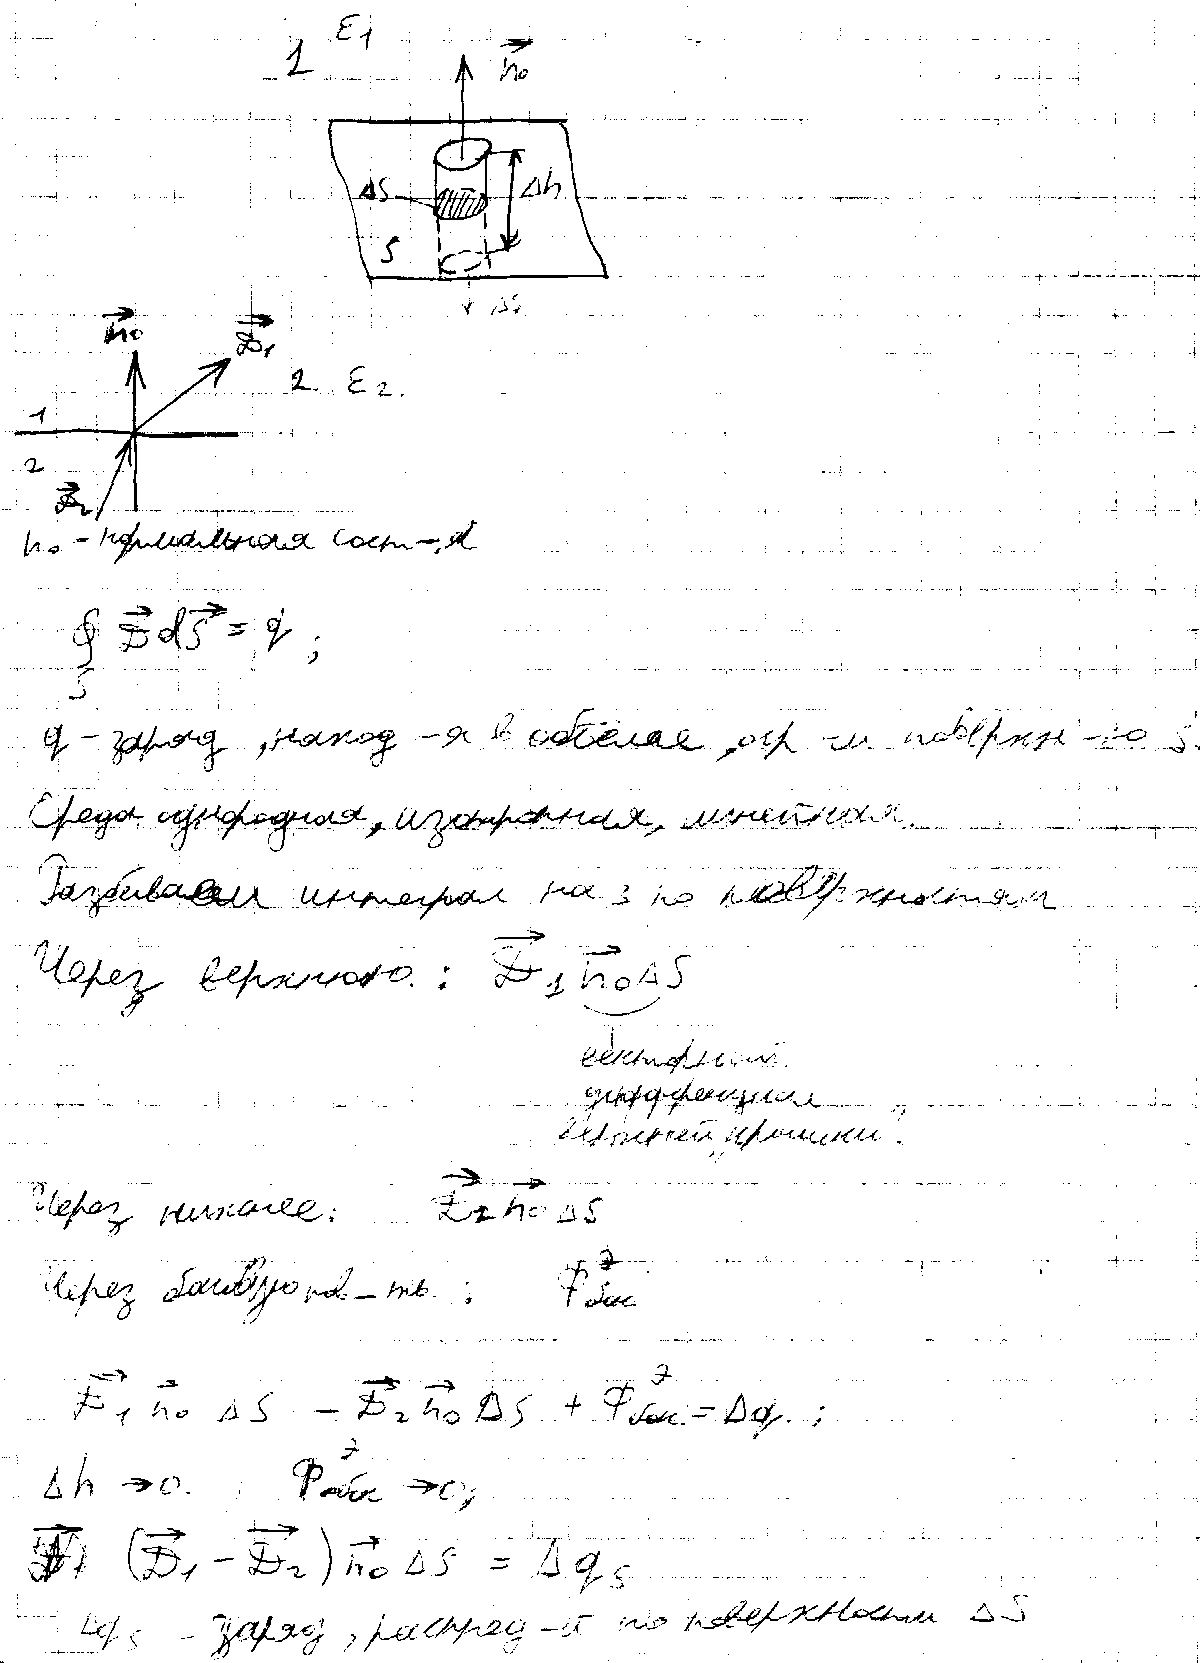 1 ε₁
n⃗₀
ΔS
Δh
S
ΔS
n⃗₀
D⃗₁
2. ε₂.
1
2
D⃗₂
n₀ - нормальная сост-я
∮ D⃗dS⃗ = q ;
S
q - заряд, наход-я в объёме, огр-м поверхн-ю S.
Среда однородная, изотропная, линейная.
Разбиваем интеграл на 3 по поверхностям
Через верхнюю: D⃗₁n⃗₀ΔS
векторный
дифференциал
верхней „крышки".
Через нижнее: D⃗₂n⃗₀ΔS
Через боковую пов-ть: Фᵉбок
D⃗₁n⃗₀ΔS - D⃗₂n⃗₀ΔS + Фᵉбок = Δq ;
Δh → 0. Фᵉбок → 0;
(D⃗₁ - D⃗₂)n⃗₀ΔS = Δqₛ
Δqₛ - заряд, распред-й по поверхности ΔS